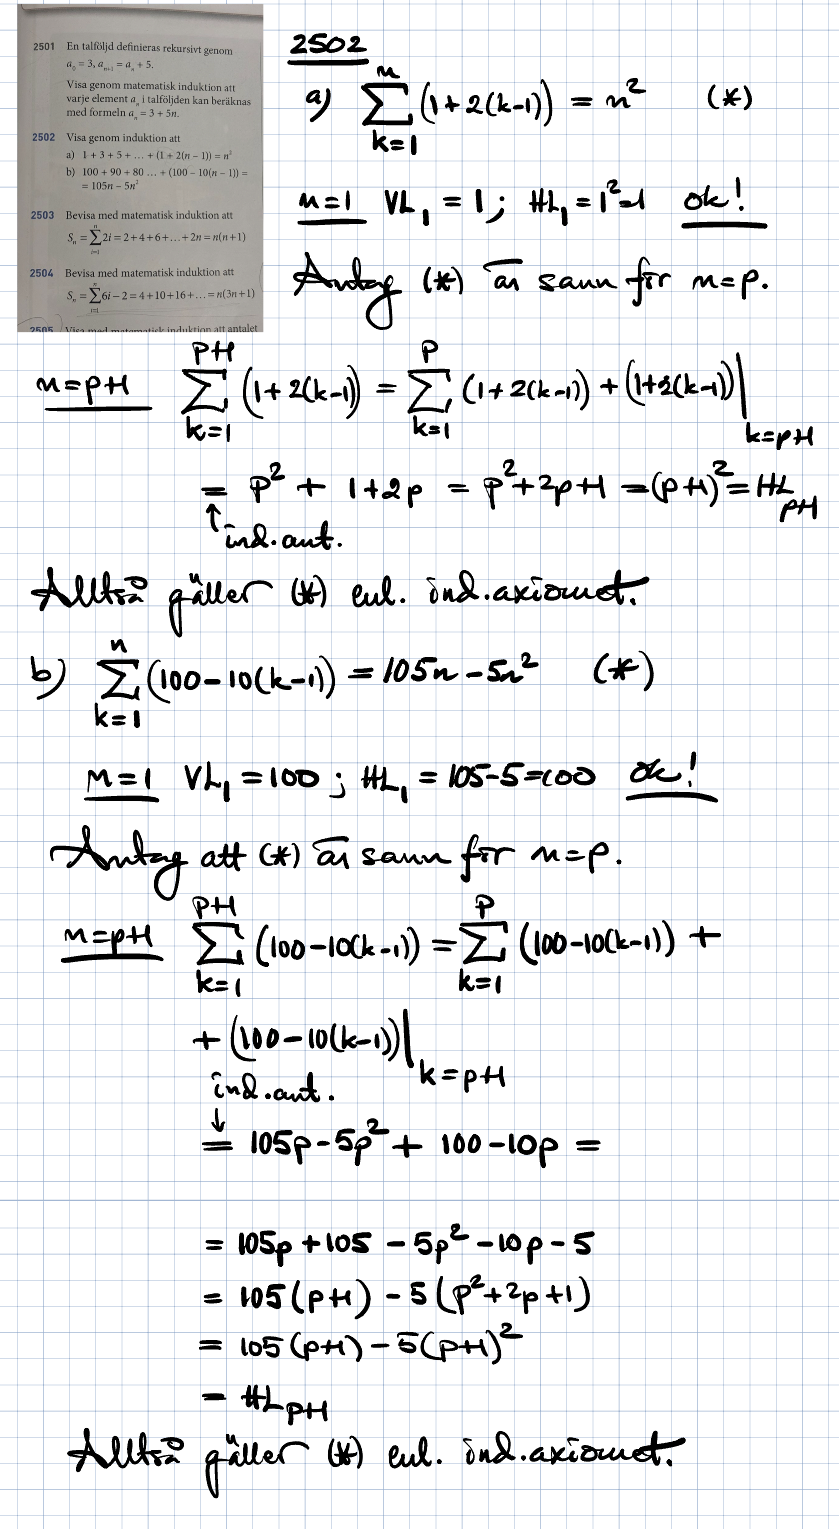 2501 En talföljd definieras rekursivt genom
a₀ = 3, aₙ₊₁ = aₙ + 5.
Visa genom matematisk induktion att
varje element aₙ i talföljden kan beräknas
med formeln aₙ = 3 + 5n.
2502 Visa genom induktion att
a) 1 + 3 + 5 + … + (1 + 2(n − 1)) = n²
b) 100 + 90 + 80 … + (100 − 10(n − 1)) =
= 105n − 5n²
2503 Bevisa med matematisk induktion att
Sₙ = ∑ᵢ₌₁ⁿ 2i = 2 + 4 + 6 + … + 2n = n(n + 1)
2504 Bevisa med matematisk induktion att
Sₙ = ∑ᵢ₌₁ⁿ 6i − 2 = 4 + 10 + 16 + … = n(3n + 1)
2505 Visa med matematisk induktion att antalet
2502
a) ∑ₖ₌₁ⁿ (1 + 2(k−1)) = n² (*)
n=1 VL₁ = 1; HL₁ = 1² = 1 ok!
Antag (*) är sann för n=p.
n=p+1 ∑ₖ₌₁ᵖ⁺¹ (1 + 2(k−1)) = ∑ₖ₌₁ᵖ (1 + 2(k−1)) + (1+2(k−1))|ₖ₌ₚ₊₁
= p² + 1+2p = p²+2p+1 = (p+1)² = HLₚ₊₁
↑ ind.ant.
Alltså gäller (*) enl. ind.axiomet.
b) ∑ₖ₌₁ⁿ (100−10(k−1)) = 105n − 5n² (*)
n=1 VL₁ = 100 ; HL₁ = 105−5=100 ok!
Antag att (*) är sann för n=p.
n=p+1 ∑ₖ₌₁ᵖ⁺¹ (100−10(k−1)) = ∑ₖ₌₁ᵖ (100−10(k−1)) +
+ (100−10(k−1))|ₖ₌ₚ₊₁
ind.ant.
↓
= 105p − 5p² + 100 − 10p =
= 105p + 105 − 5p² − 10p − 5
= 105(p+1) − 5(p²+2p+1)
= 105(p+1) − 5(p+1)²
= HLₚ₊₁
Alltså gäller (*) enl. ind.axiomet.